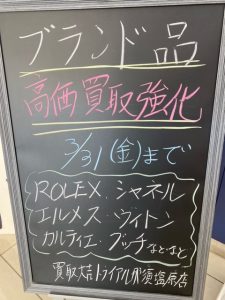 ブランド品
高価買取強化
3/31(金)まで
ROLEX．シャネル
エルメス．ヴィトン
カルティエ．グッチなどなど
買取大吉トライアル那須塩原店